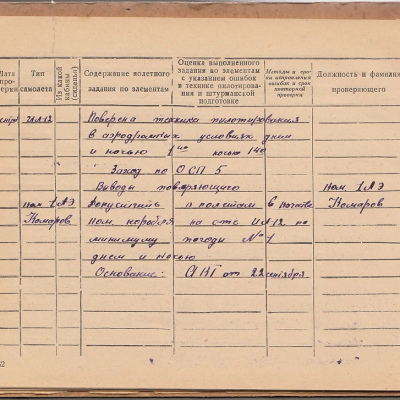 Дата про- верки
Тип самолета
Из какой кабины (сиденья)
Содержание полетного задания по элементам
Оценка выполненного задания по элементам с указанием ошибок в технике пилотирования и штурманской подготовке
Методы и сроки исправления ошибок и срок повторной проверки
Должность и фамилия проверяющего
ИЛ12 Поверена техника пилотирования
в аэродромных условиях днем
и ночью 1 40 ночью 140
Заход по ОСП 5
Выводы поверяющего
пом. 1АЭ Допускать к полетам в качестве пом. 1АЭ
Комаров пом. корабля на сте ИЛ-12 по Комаров
минимуму погоды №1
днем и ночью
Основание: АКТ от 22 сентября